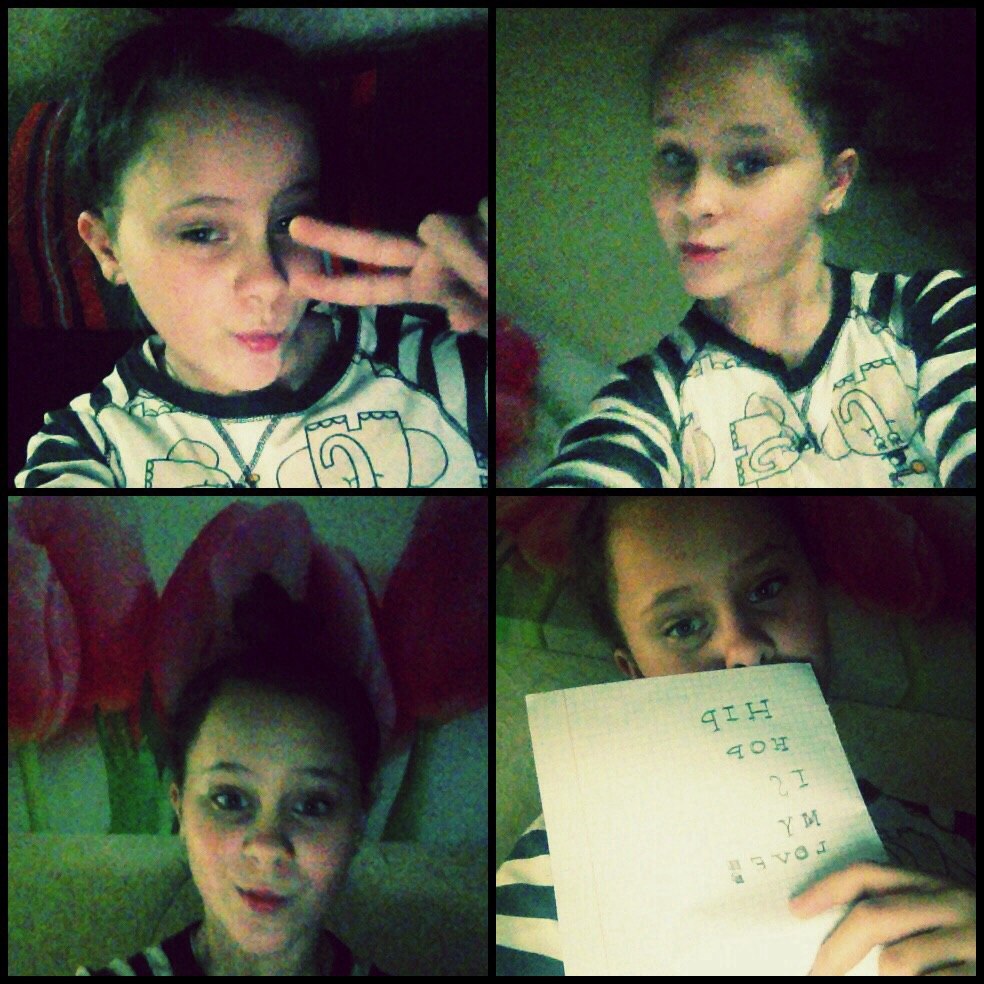 HIP
HOP
IS
MY
LOVE